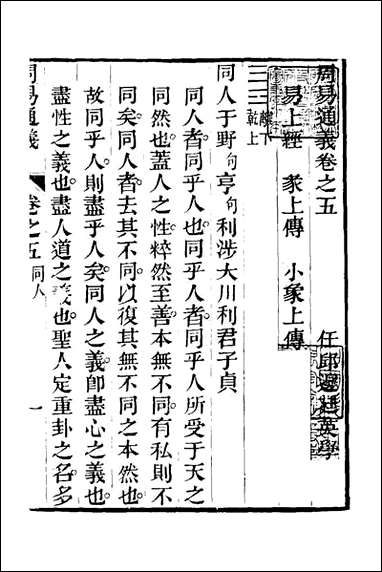 周易通義卷之五
任邱邊廷英學
易上經　彖上傳　小象上傳
離下
乾上
同人于野句亨句利涉大川利君子貞
同人者同乎人也同乎人者同乎人所受于天之
同然也蓋人之性粹然至善本無不同有私則不
同矣同人者去其不同以復其無不同之本然也
故同乎人則盡乎人矣同人之義卽盡心之義也
盡性之義也盡人道之義也聖人定重卦之名多
周易通義
卷之五同人
一